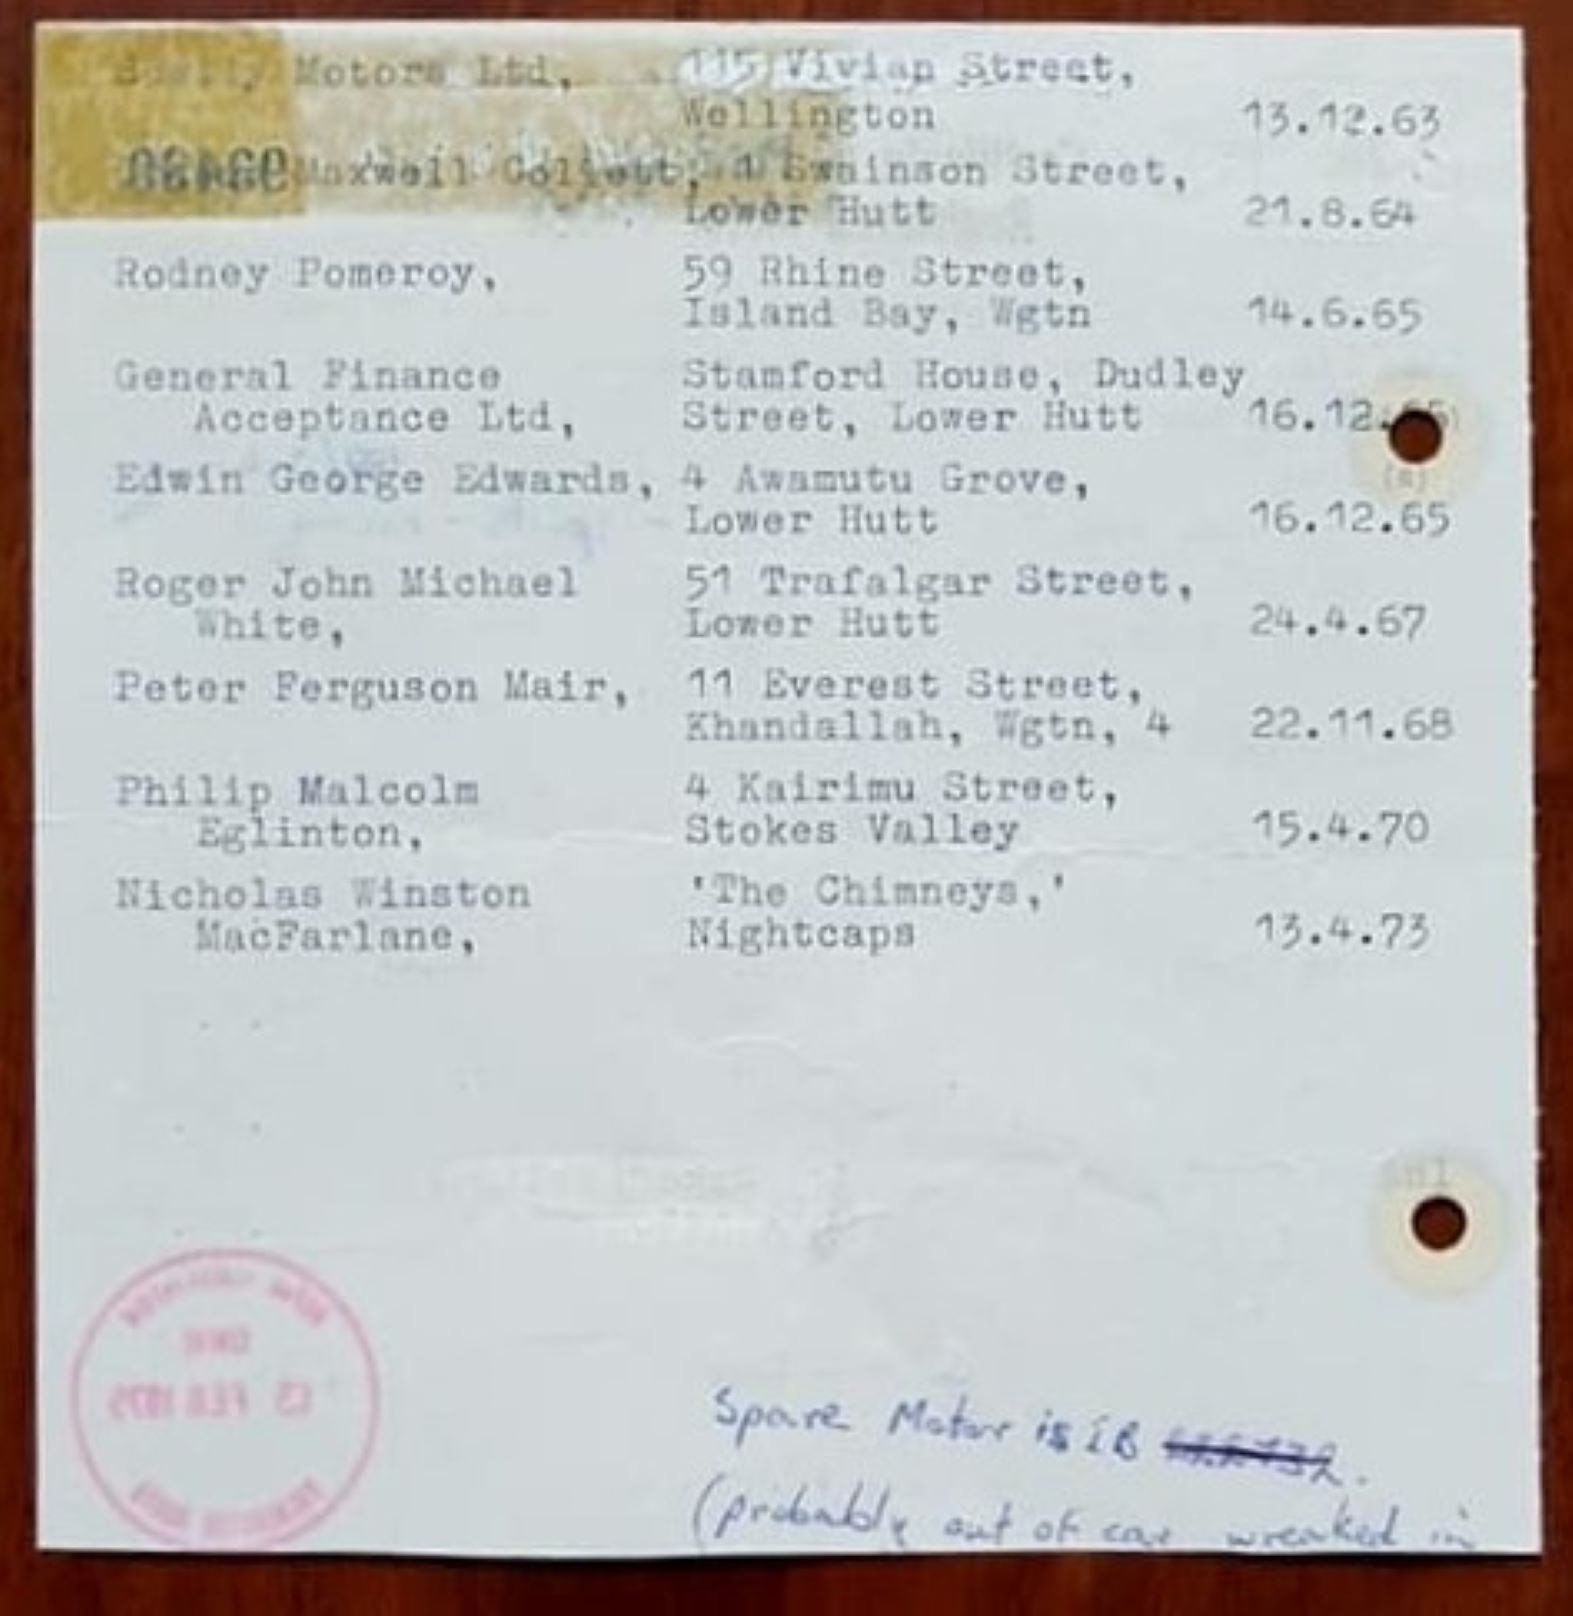 Motors Ltd, 115 Vivian Street,
Wellington 13.12.63
Maxwell Collett, 1 Swainson Street,
Lower Hutt 21.8.64
Rodney Pomeroy, 59 Rhine Street,
Island Bay, Wgtn 14.6.65
General Finance Stamford House, Dudley
Acceptance Ltd, Street, Lower Hutt 16.12.65
Edwin George Edwards, 4 Awamutu Grove,
Lower Hutt 16.12.65
Roger John Michael 51 Trafalgar Street,
White, Lower Hutt 24.4.67
Peter Ferguson Mair, 11 Everest Street,
Khandallah, Wgtn, 4 22.11.68
Philip Malcolm 4 Kairimu Street,
Eglinton, Stokes Valley 15.4.70
Nicholas Winston 'The Chimneys,'
MacFarlane, Nightcaps 13.4.73
FEB 1975
Spare Motor is IB
(probably out of car wreaked in